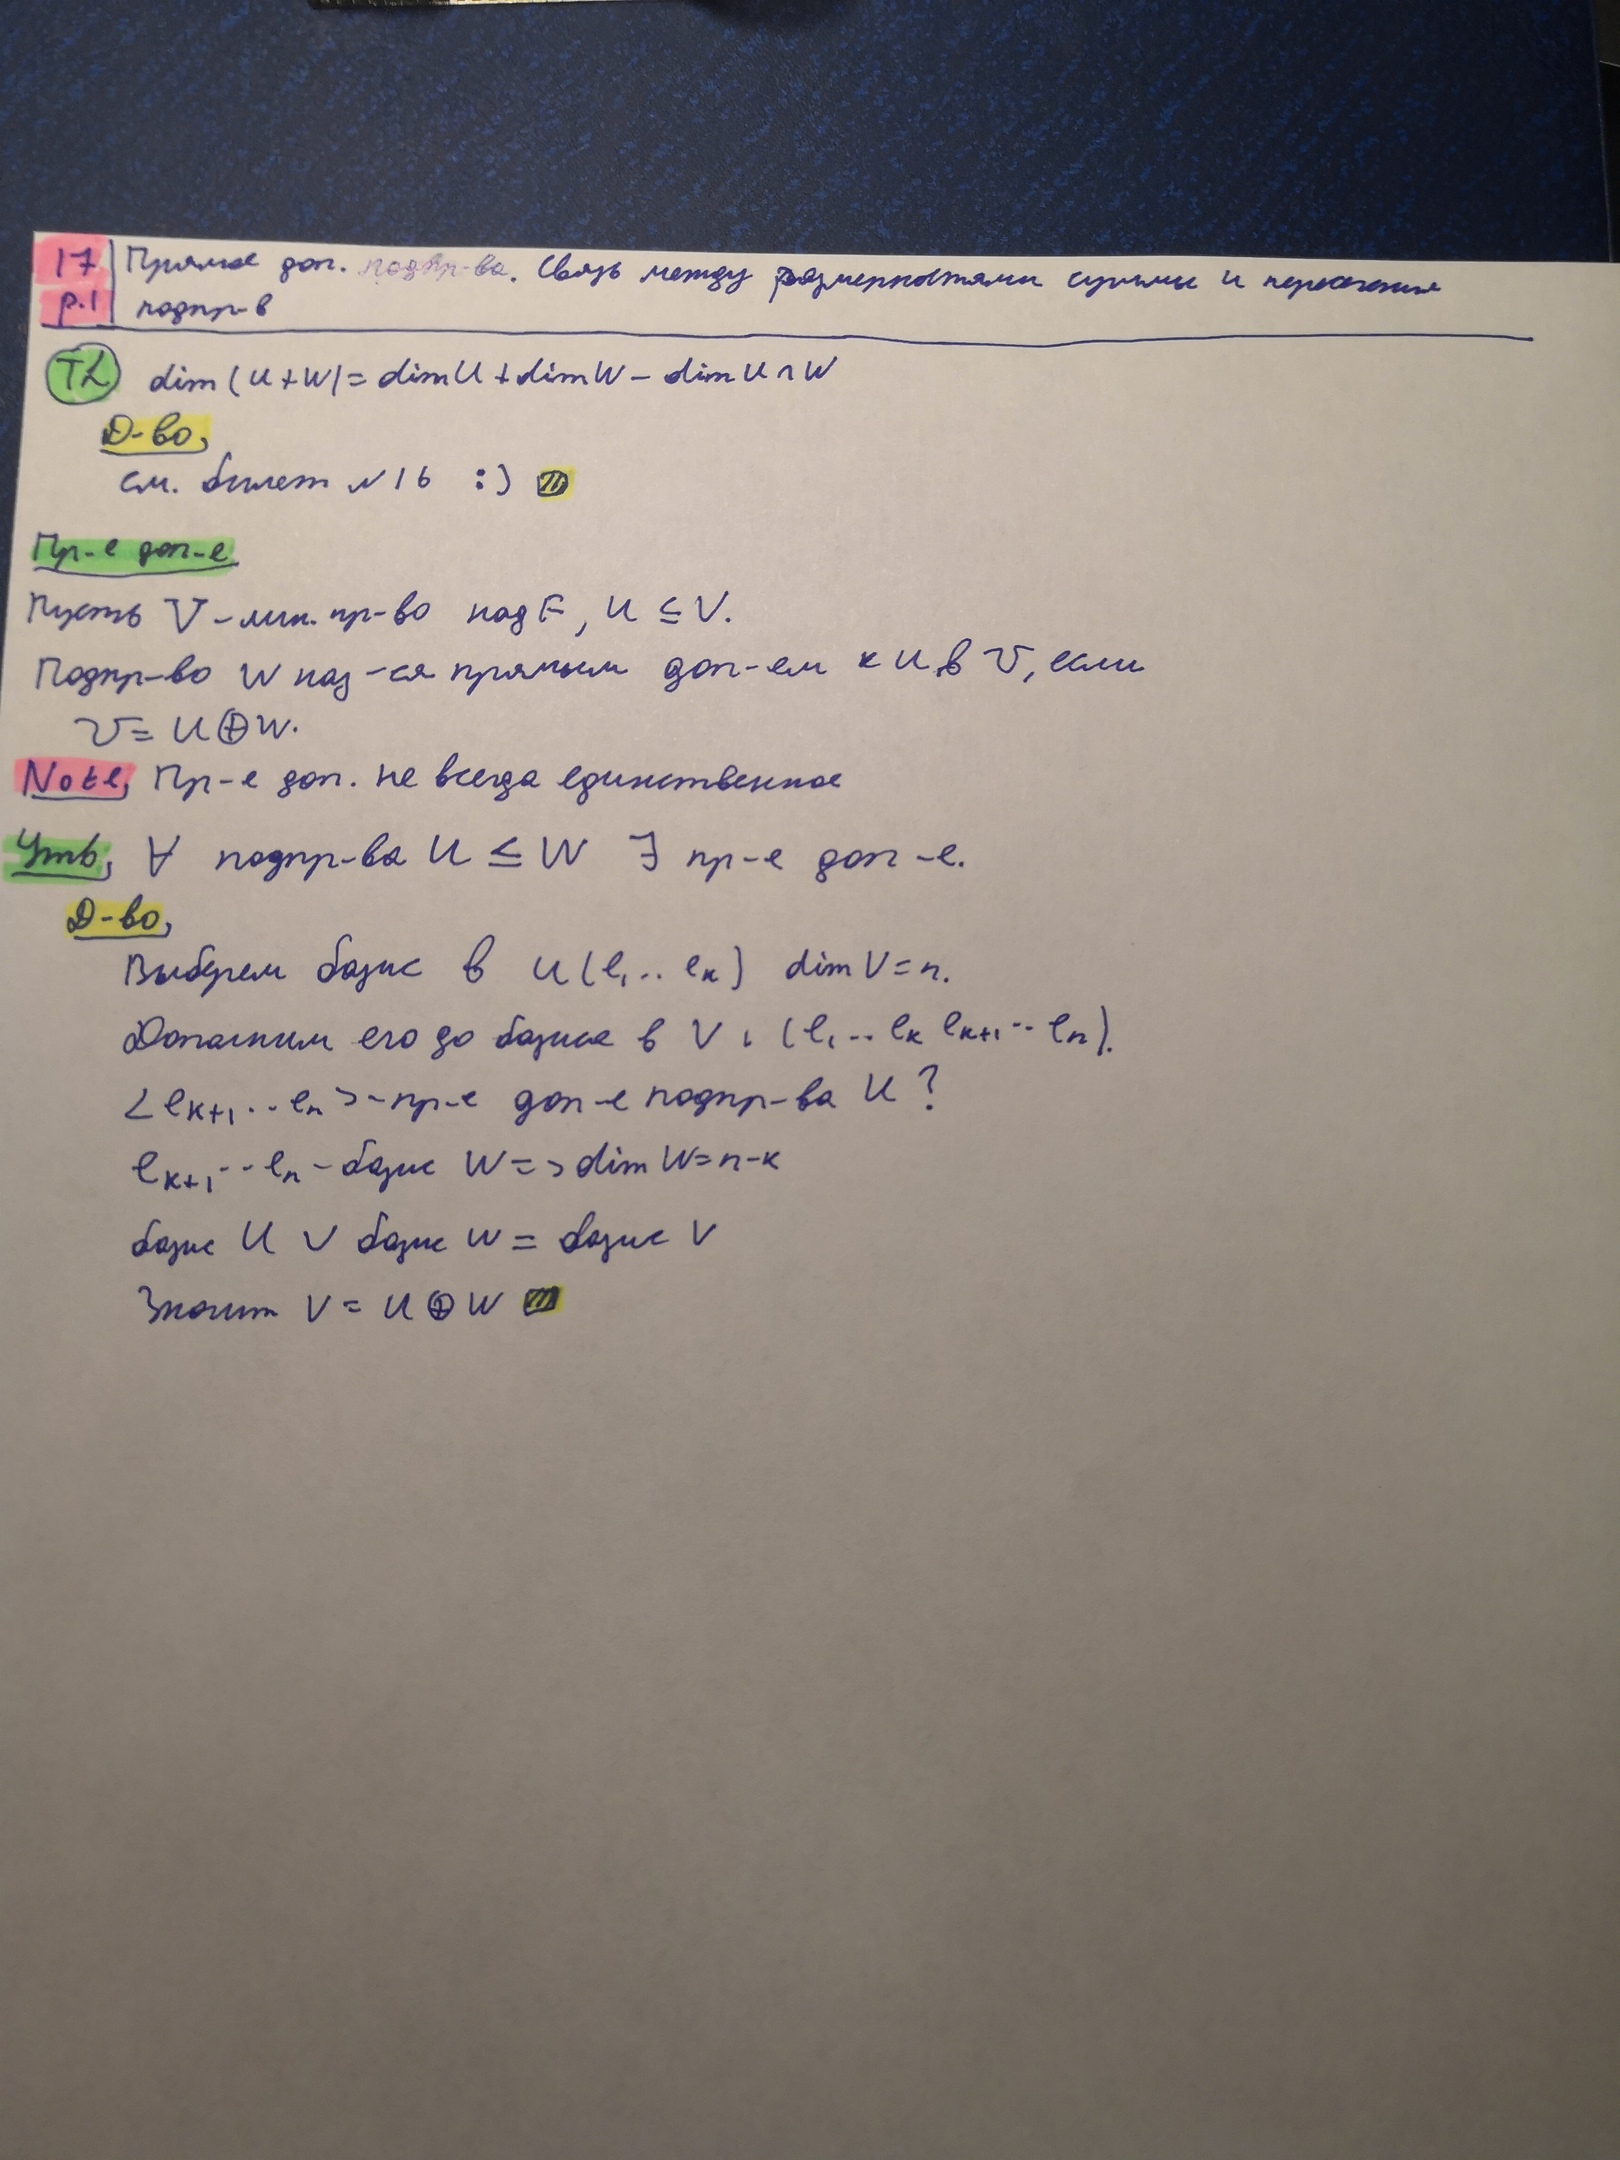 17 Прямое доп. подпр-ва. Связь между размерностями суммы и пересечения
p.1 подпр-в
Th dim(U+W)=dimU+dimW-dimU∩W
Д-во,
см. билет №16 :)
Пр-е доп-е
Пусть V-лин. пр-во над F, U⊆V.
Подпр-во W наз-ся прямым доп-ем к U в V, если
V=U⊕W.
Note, Пр-е доп. не всегда единственное
Утв, ∀ подпр-ва U≤W ∃ пр-е доп-е.
Д-во,
Выберем базис в U(e₁..eₖ) dimV=n.
Дополним его до базиса в V: (e₁..eₖ eₖ₊₁..eₙ).
<eₖ₊₁..eₙ>-пр-е доп-е подпр-ва U?
eₖ₊₁..eₙ-базис W=>dimW=n-k
базис U ∪ базис W = базис V
Значит V=U⊕W